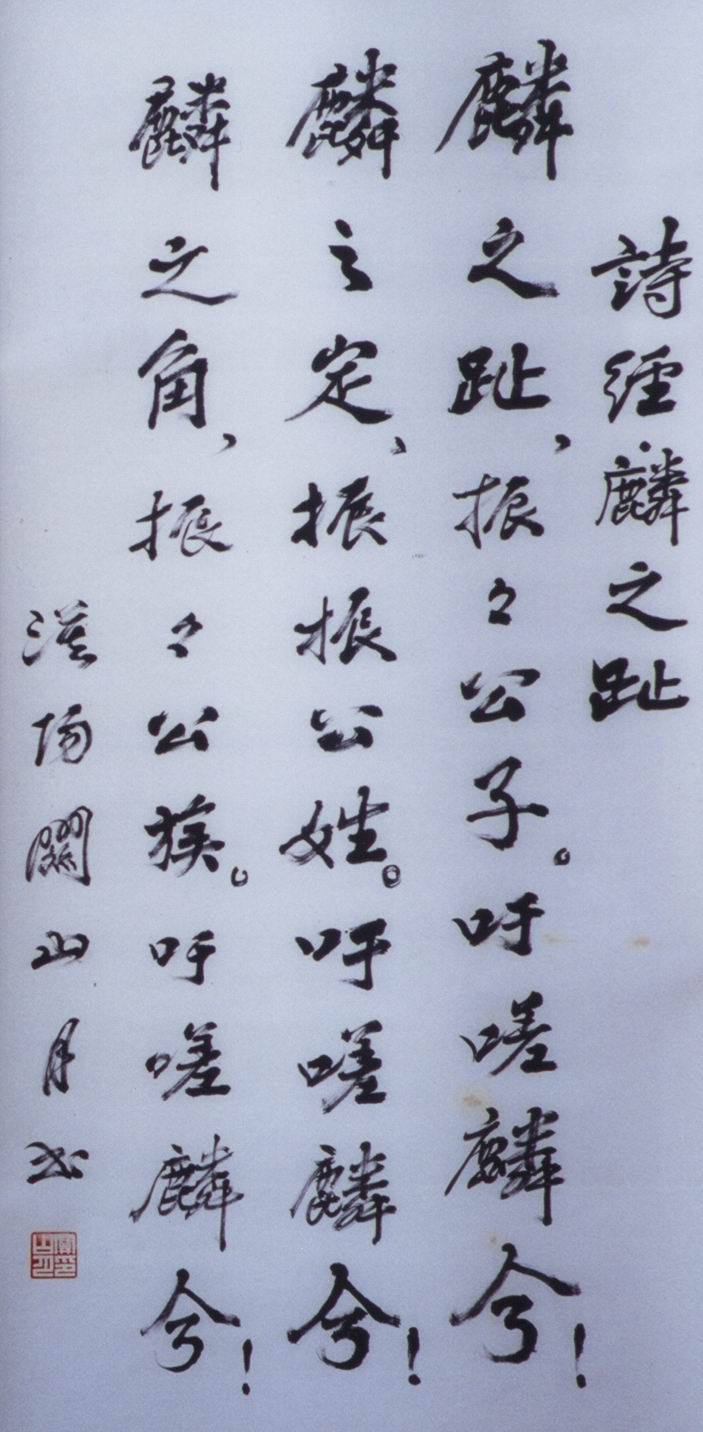 詩經·麟之趾
麟之趾，振々公子。吁嗟麟兮！
麟之定、振振公姓。吁嗟麟兮！
麟之角，振々公族。吁嗟麟兮！
漢陽關山月书